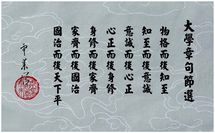 大學章句節選
物格而後知至
知至而後意誠
意誠而後心正
心正而後身修
身修而後家齊
家齊而後國治
國治而後天下平